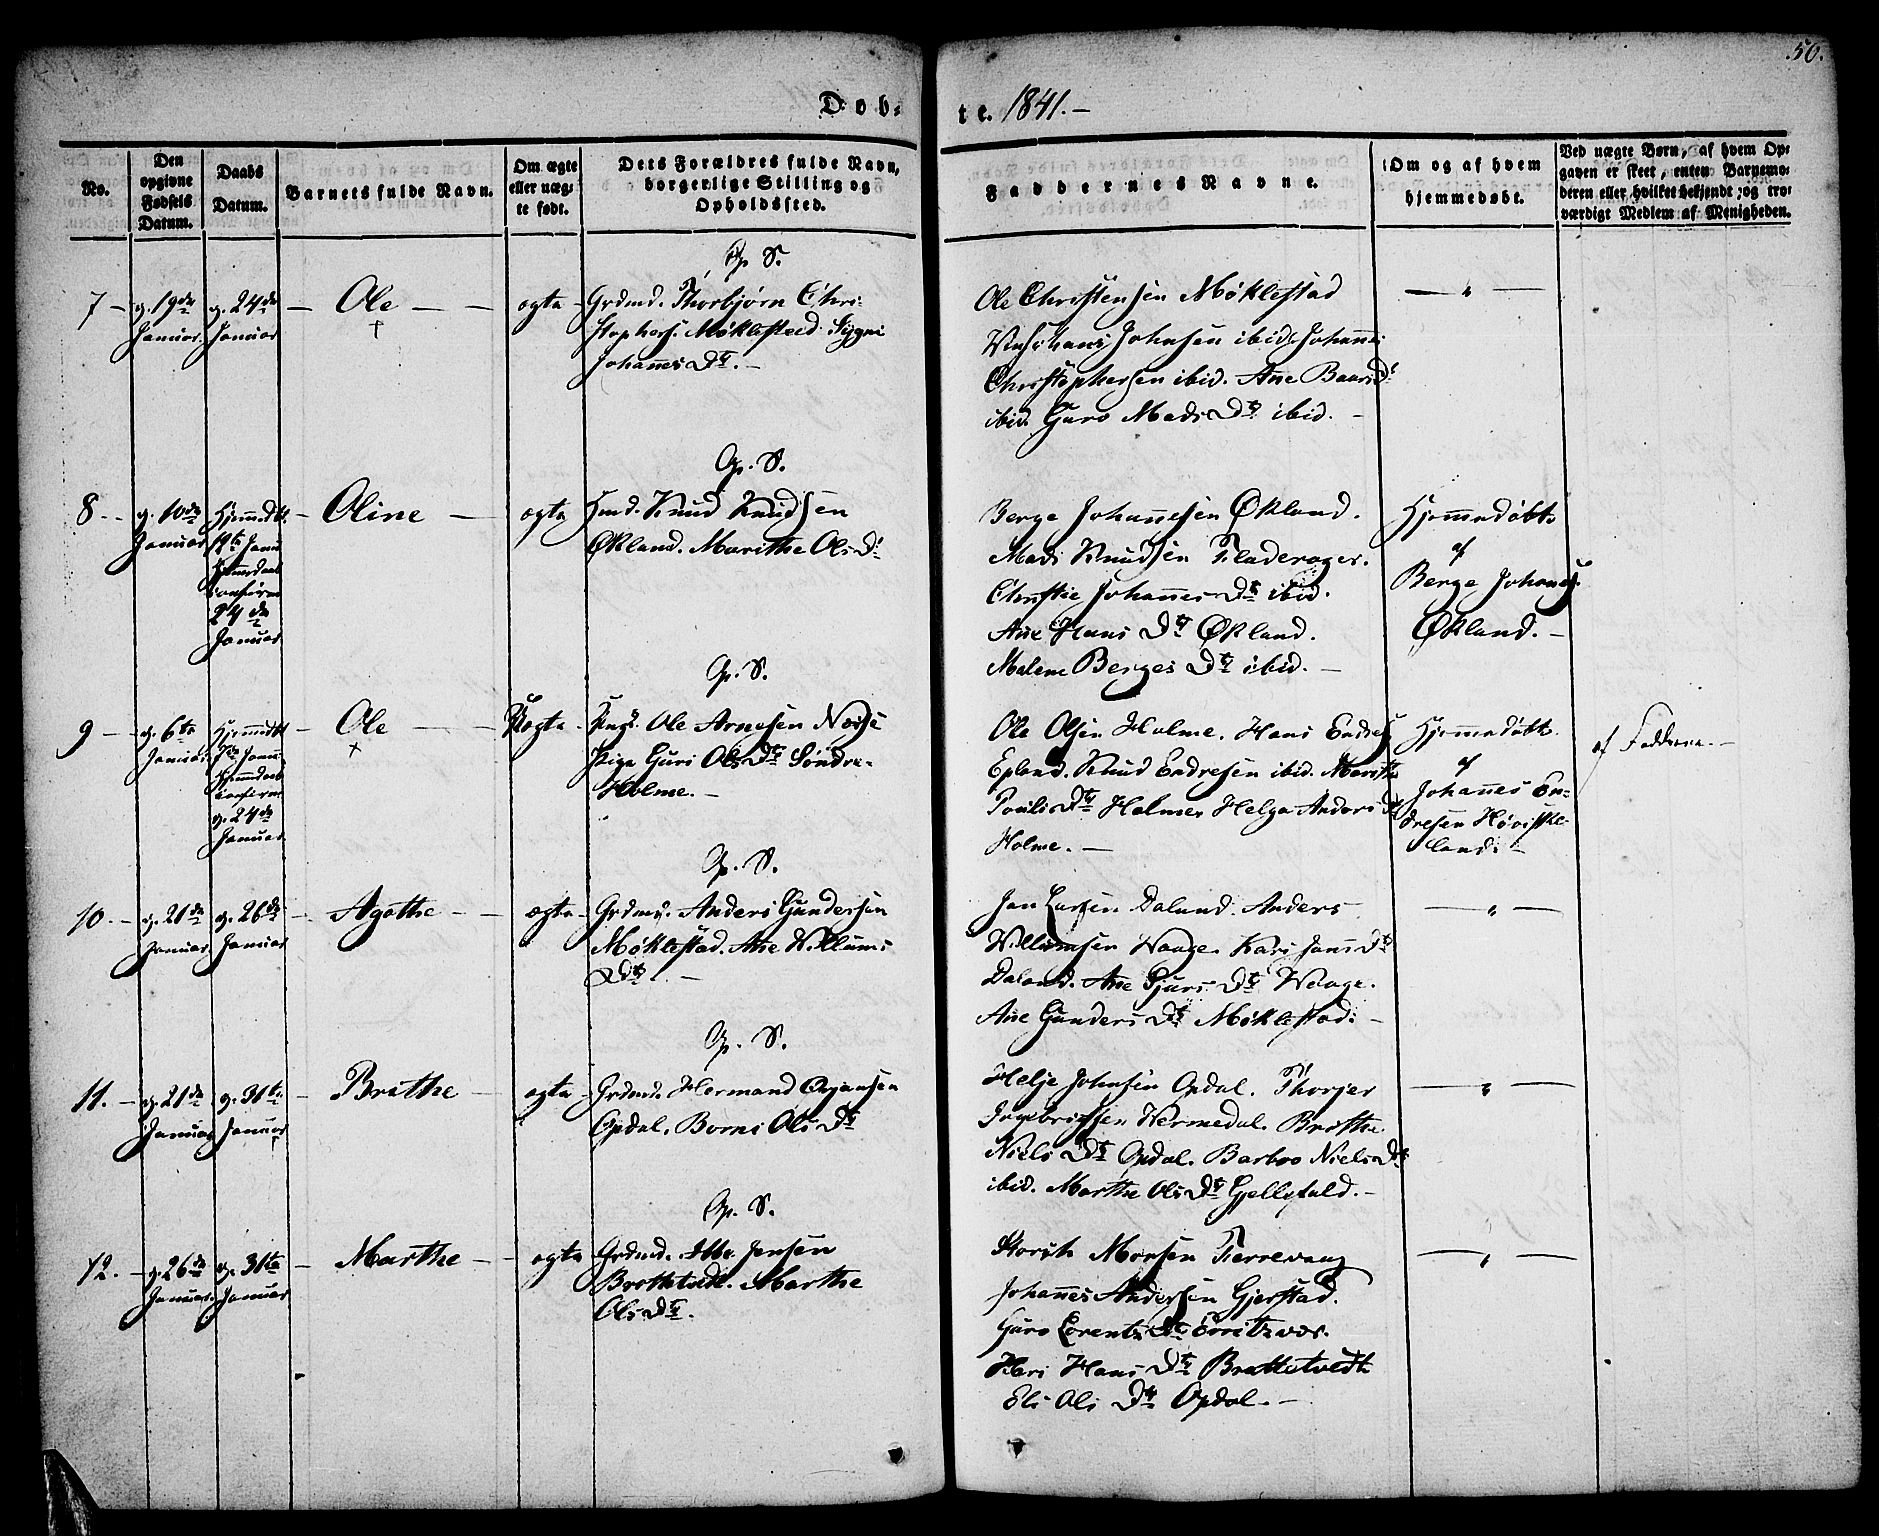 50.
Døb-
te. 1841.-
No.
Den opgivne Fødsels Datum.
Daabs Datum.
Barnets fulde Navn.
Om ægte eller uægte født.
Dets Forældres fulde Navn, borgerlige Stilling og Opholdssted.
Faddernes Navne.
Om og af hvem hjemmedøbt.
Ved uægte Børn, af hvem Opgaven er skeet, enten Barnemoderen eller hvilket bekjendt, og troværdigt Medlem af Menigheden.
G. S.
7 - g. 19de Januar. g. 24de Januar - Ole - ægte -
Grdmd. Thorbjørn Chri-
stophers. Møklestad. Sygni
Johannes Dt. -
Ole Christensen Møklestad
Johnsen ibid. Johannes
Christophersen ibid. Ane Baards Dt
ibid. Guro Mads Dt ibid. -
G. S.
8 - g. 10de Januar Hjemmedøbt 24de Januar - Oline - ægte
Hmd. Knud Knudsen
Økland. Marithe Ols Dt
Berge Johannesen Økland.
Mads Knudsen Fladerager.
Christie Johannes Dt ibid.
Ane Hans Dt Økland.
Malene Berges Dt ibid. -
Hjemmedøbt
af
Berge Johannes.
Økland. -
G. S.
9 - g. 6te Januar g. 24de Januar - Ole - Uægte -
Ungk. Ole Arnesen
Pige Guri Ols Dt Søndre-
Holme. -
Ole Olsen Holme. Hans Endres.
Epland. Knud Endresen ibid. Marithe
Pouls Dt Holme. Helga Anders Dt
Holme. -
Hjemmedøbt.
af
Johannes En-
dresen
land. -
af Fadderne. -
G. S.
10. - g. 21de Januar. g. 26de Januar - Agathe - ægte -
Grdmd. Anders Gundersen
Møklestad. Ane Willums
Dt. -
Jan Larsen Daland. Anders
Willumsen Waage. Kari Jans Dt
Daland. Ane Sjurs Dt Waage.
Ane Gunders Dt Møklestad. -
G. S.
11. - g. 21de Januar g. 31te Januar - Brithe - ægte -
Grdmd. Hermand Ørjansen
Opdal. Borni Ols Dt
Helje Johnsen Opdal. Thorjer
Ingebrigtsen Hermedal. Brithe
Niels Dt Opdal. Barbro Niels Dt
ibid. Marthe Ols Dt -
G. S.
12. - g. 26de Januar. g. 31te Januar - Marthe - ægte
Grdmd. Jensen
Brattetvedt. Marthe
Ols Dt.
Monsen Fierrevaag
Johannes Andersen Gjerstad.
Guro Lorentz Dt
Kari Hans Dt Brattetvedt
Eli Ols Dt Opdal. -